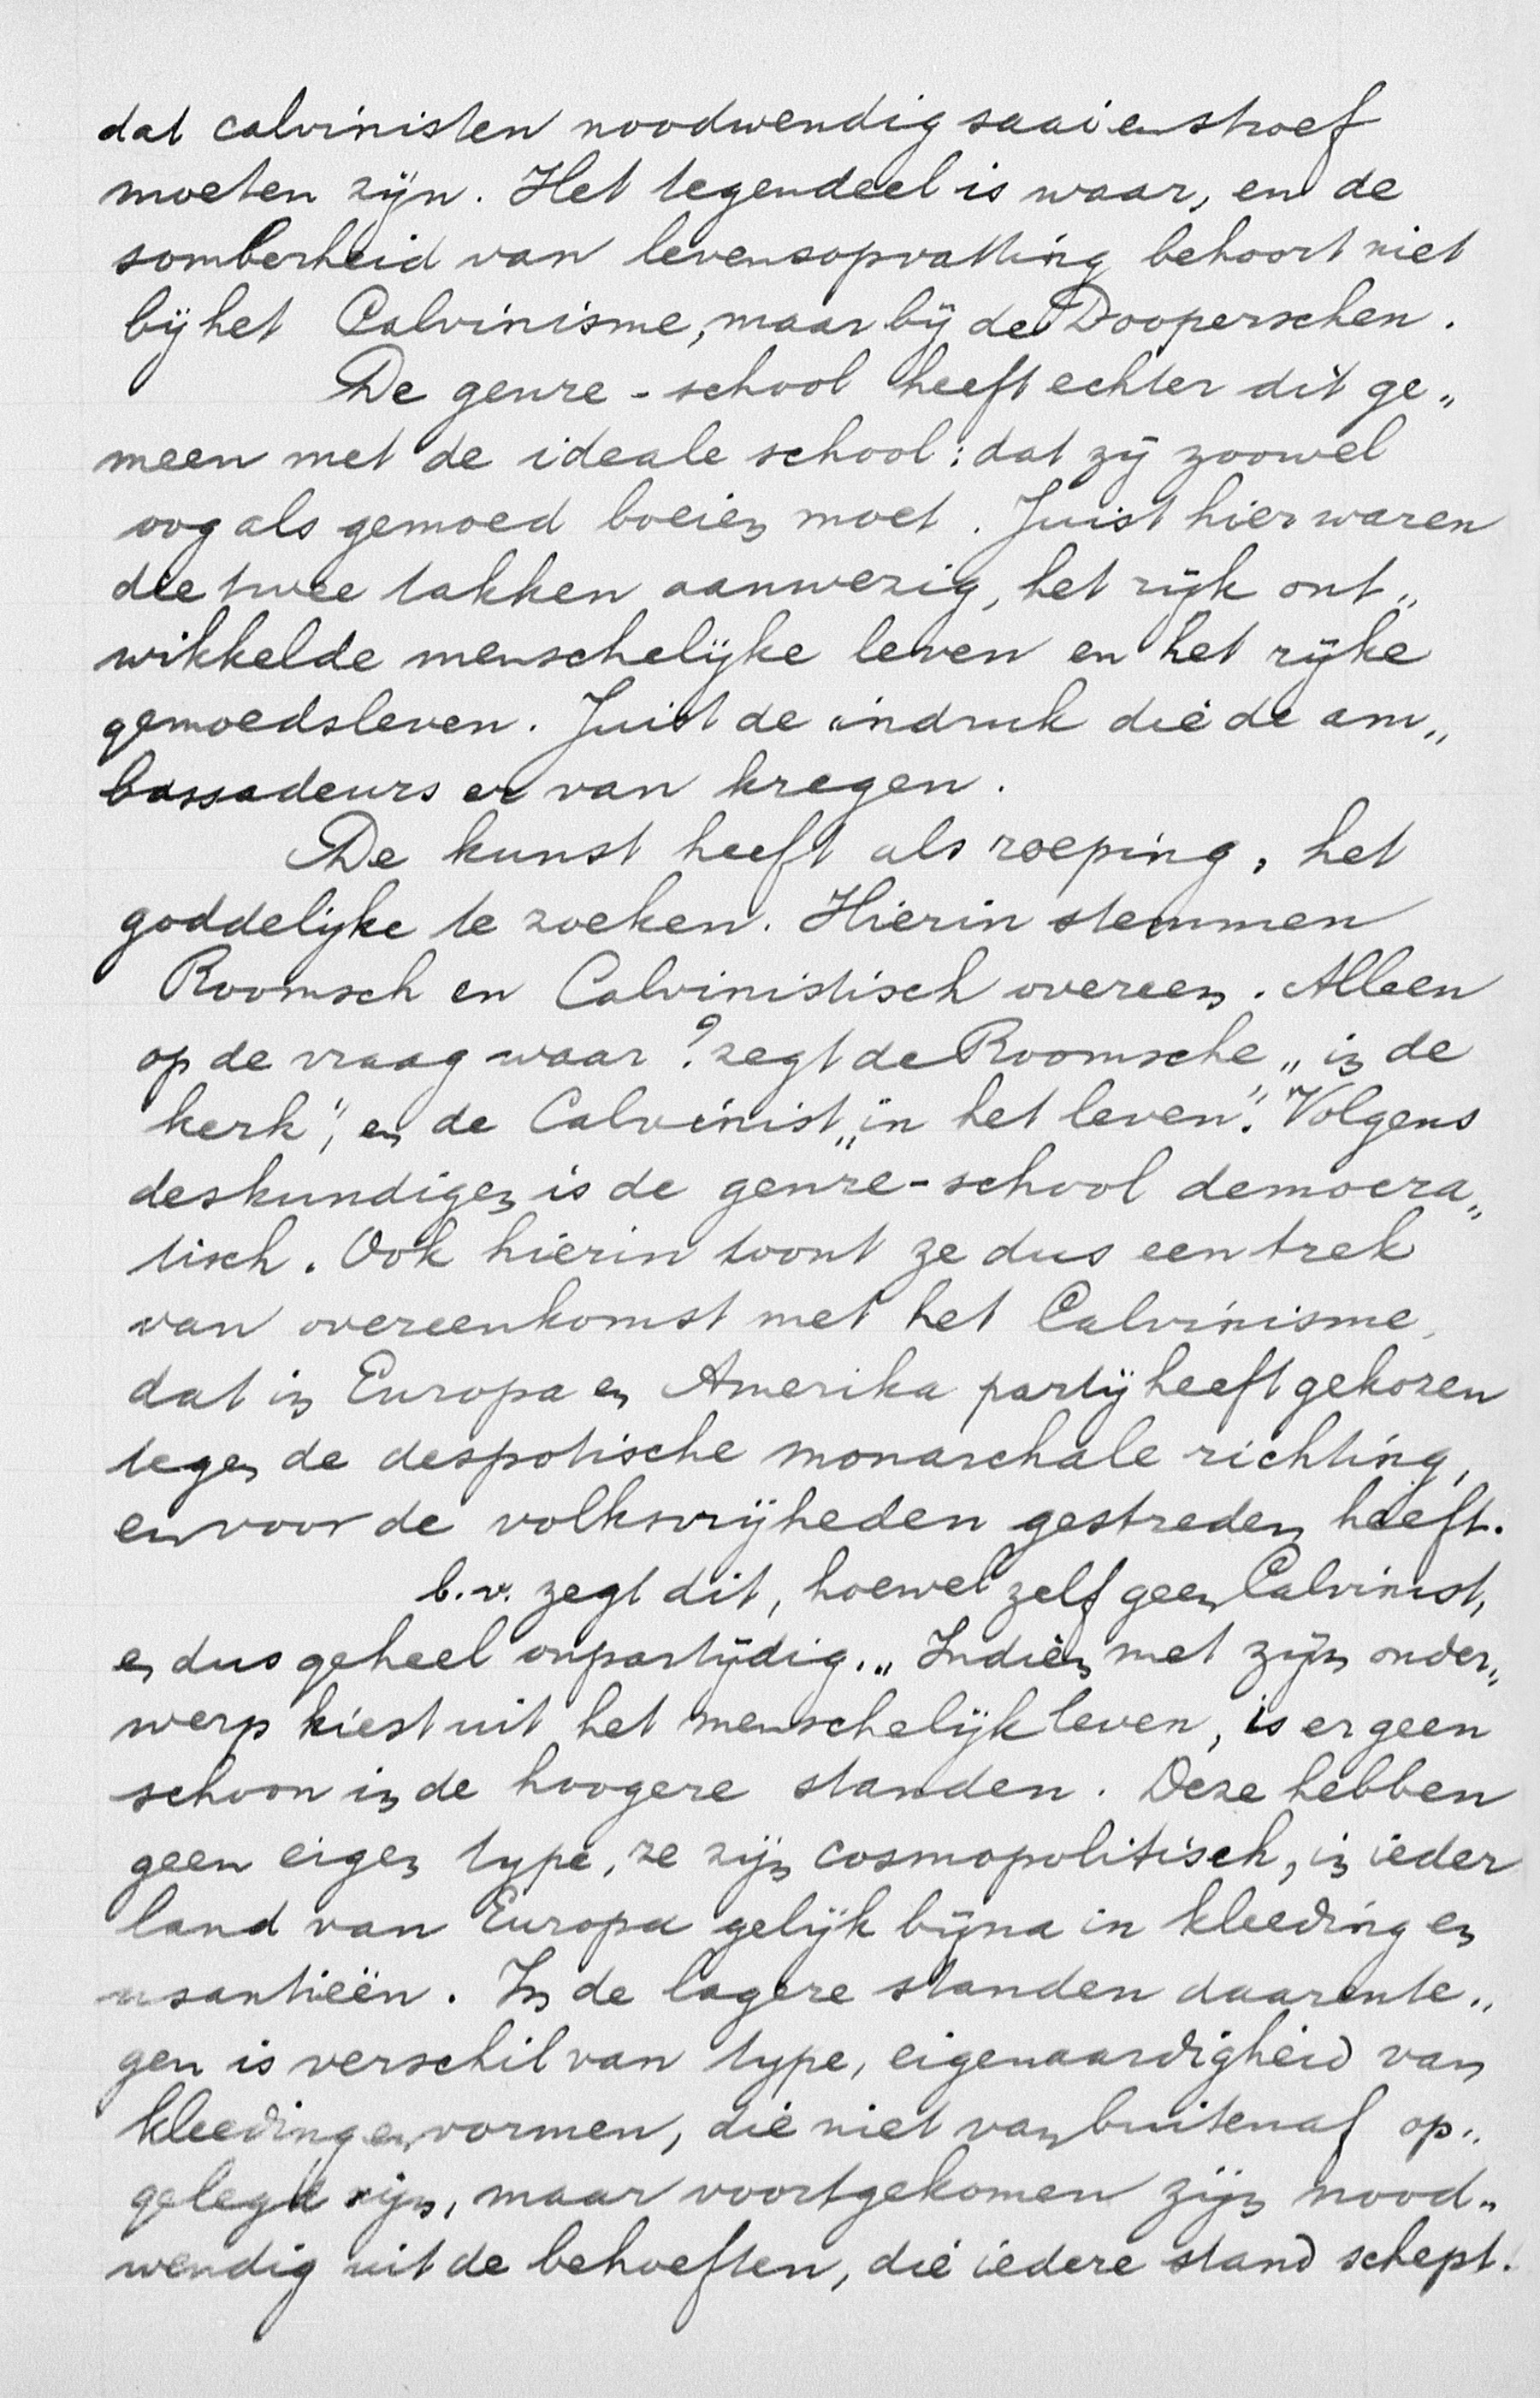 dat calvinisten noodwendig saai en stroef
moeten zijn. Het tegendeel is waar, en de
somberheid van levensopvatting behoort niet
bij het Calvinisme, maar bij de Dooperschen.
De genre-school heeft echter dit ge„
meen met de ideale school: dat zij zoowel
oog als gemoed boeien moet. Juist hier waren
die twee takken aanwezig, het rijk ont„
wikkelde menschelijke leven en het rijke
gemoedsleven. Juist de indruk die de am„
bassadeurs er van kregen.
De kunst heeft als roeping, het
goddelijke te zoeken. Hierin stemmen
Roomsch en Calvinistisch overeen. Alleen
op de vraag waar? zegt de Roomsche „in de
kerk", en de Calvinist „in het leven". Volgens
deskundigen is de genre-school democra„
tisch. Ook hierin toont ze dus een trek
van overeenkomst met het Calvinisme,
dat in Europa en Amerika partij heeft gekozen
tegen de despotische monarchale richting,
en voor de volksvrijheden gestreden heeft.
b.v. zegt dit, hoewel zelf geen Calvinist,
en dus geheel onpartijdig. „Indien met zijn onder„
werp kiest uit het menschelijk leven, is er geen
schoon in de hoogere standen. Deze hebben
geen eigen type, ze zijn cosmopolitisch, in ieder
land van Europa gelijk bijna in kleeding en
usantieën. In de lagere standen daarente„
gen is verschil van type, eigenaardigheid van
kleeding en vormen, die niet van buitenaf op„
gelegd zijn, maar voortgekomen zijn nood„
wendig uit de behoeften, die iedere stand schept.